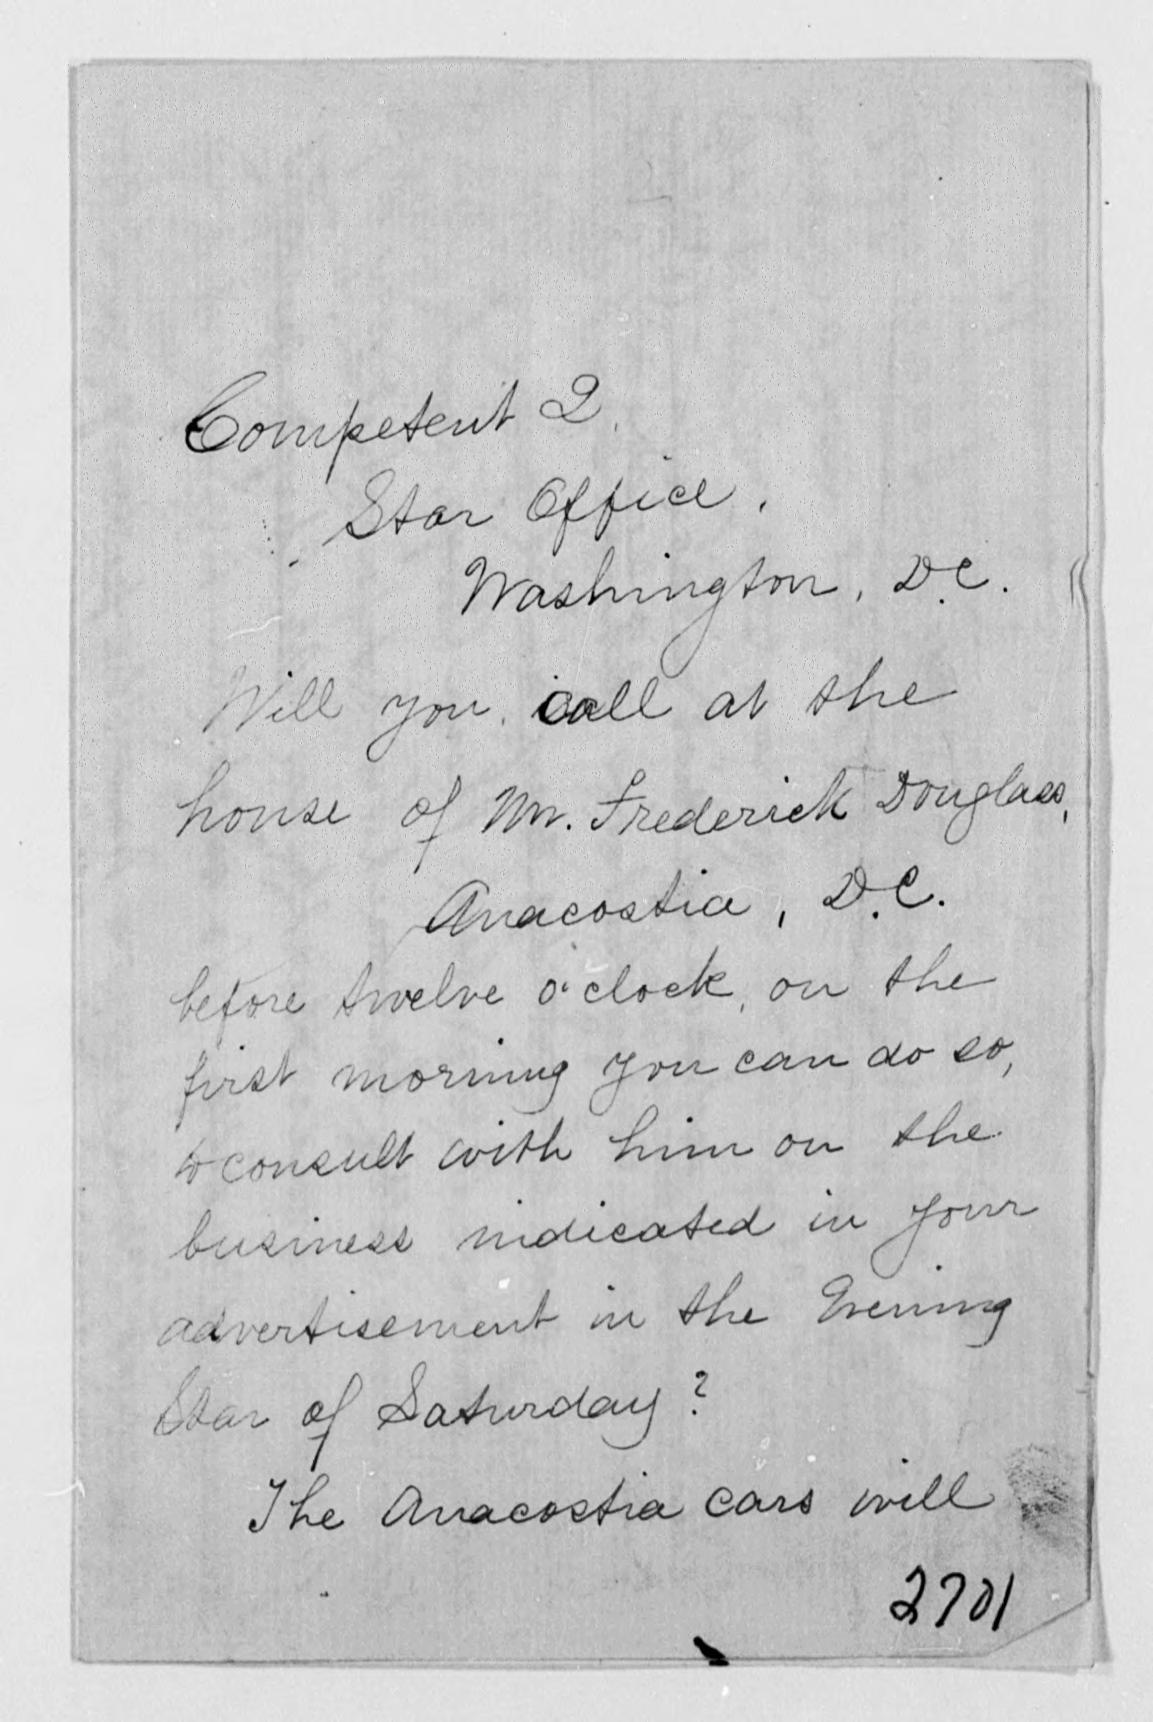 Competent 2,
Star Office,
Washington, D.C.
Will you call at the
house of Mr. Frederick Douglass,
Anacostia, D.C.
before twelve o'clock, on the
first morning you can do so,
to consult with him on the
business indicated in your
advertisement in the Evening
Star of Saturday?
The Anacostia cars will
2701